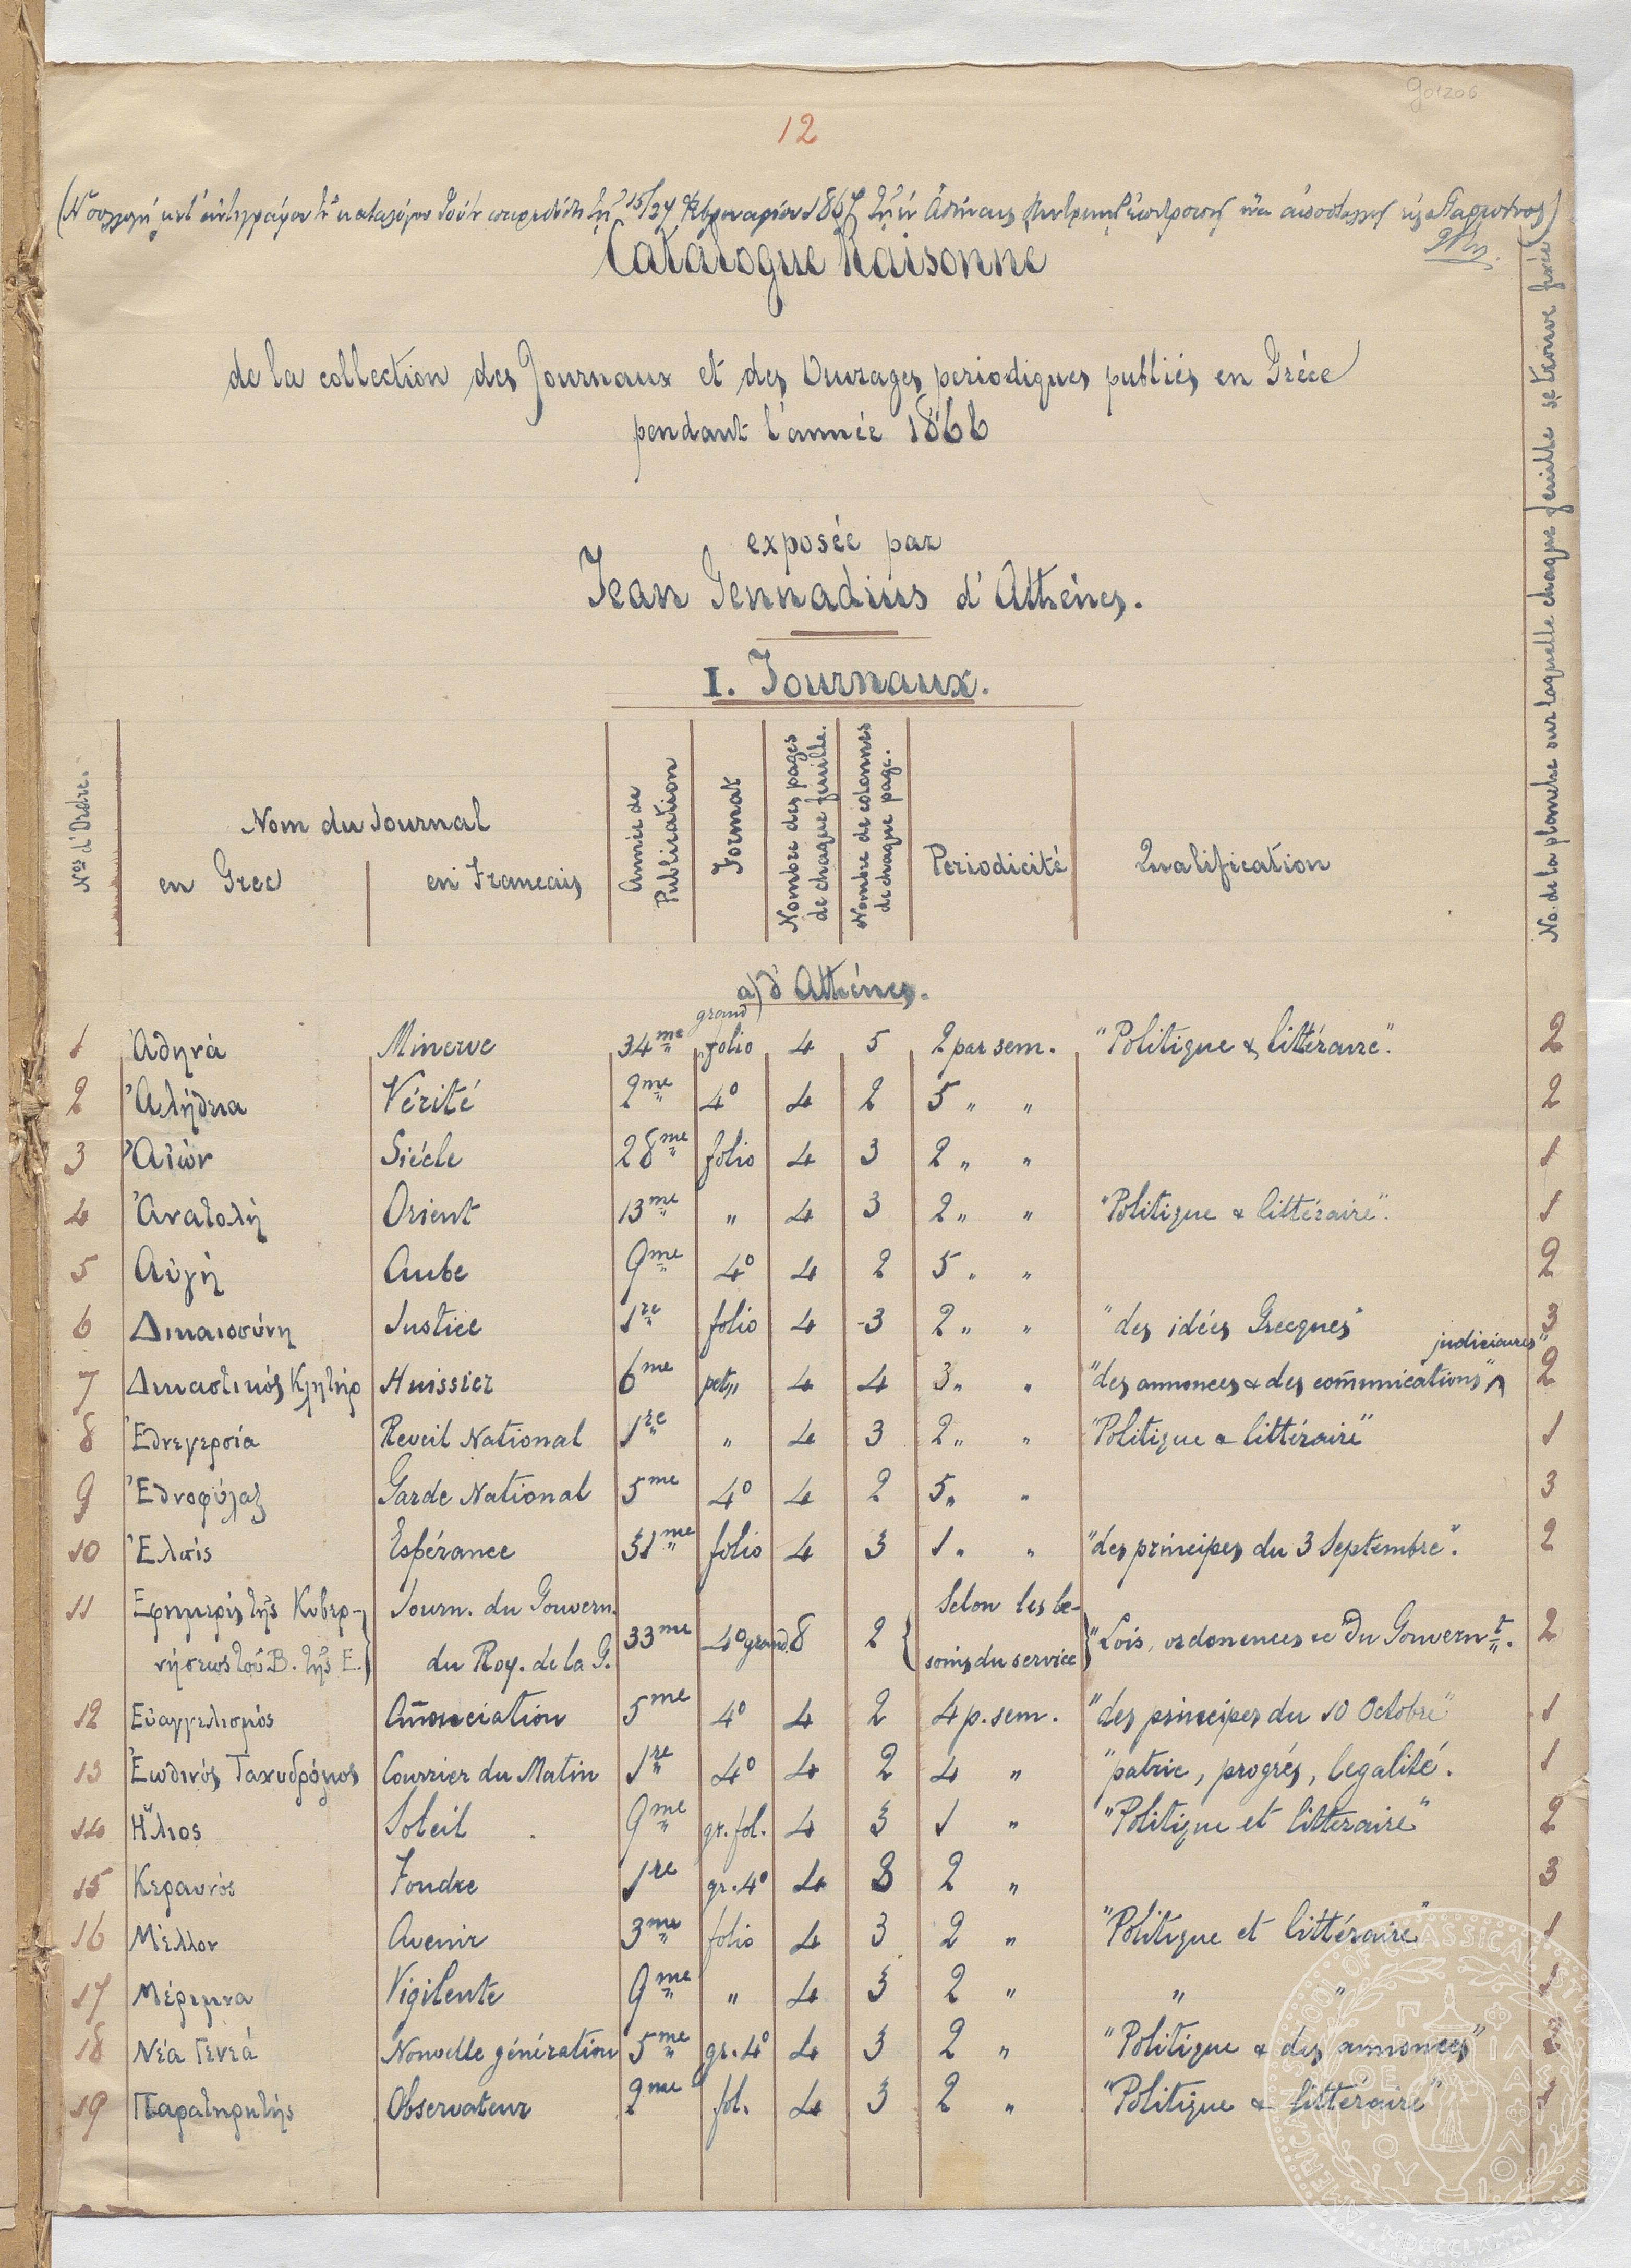 g01206
12
15/27 Φεβρουαρίου 1867
Catalogue Raisonné
de la collection des Journaux et des Ouvrages periodiques publiés en Grèce
pendant l'année 1866
exposée par
Jean Gennadius d'Athènes.
I. Journaux.
Nos d'Ordre. Nom du Journal en Grec en Francais Année de Publication Format Nombre des pages de chaque feuille. Nombre de colonnes de chaque page. Periodicité Qualification No. de la planche sur laquelle chaque feuille se trouve fixée
a) d'Athénes.
1 Ἀθηνά Minerve 34me grand folio 4 5 2 par sem. "Politique & littéraire". 2
2 Ἀλήθεια Vérité 2me 4º 4 2 5 " " 2
3 Αἰών Siécle 28me folio 4 3 2 " " 1
4 Ἀνατολή Orient 13me " 4 3 2 " " "Politique & littéraire". 1
5 Αὐγή Aube 9me 4º 4 2 5 " " 2
6 Δικαιοσύνη Justice 1re folio 4 3 2 " " "des idées Grecques" 3
7 Δικαστικός Κλητήρ Huissier 6me pet " 4 4 3 " " "des annonces & des communications judiciaires" 2
8 Ἐθνεγερσία Reveil National 1re " 4 3 2 " " "Politique & littéraire" 1
9 Ἐθνοφύλαξ Garde National 5me 4º 4 2 5 " " 3
10 Ἐλπίς Espérance 31me folio 4 3 1 " " "des principes du 3 Septembre". 2
11 Εφημερίς τῆς Κυβερ- Journ. du Gouvern. Selon les be-
νήσεως τοῦ Β. τῆς Ε. du Roy. de la G. 33me 4º grand 8 2 soins du service "Lois, ordonences &c du Gouvernt". 2
12 Εὐαγγελισμός Annonciation 5me 4º 4 2 4 p. sem. "des principes du 10 Octobre" 1
13 Ἑωθινός Ταχυδρόμος Courrier du Matin 1re 4º 4 2 4 " "patrie, progrés, legalité. 1
14 Ἥλιος Soleil 9me gr. fol. 4 3 1 " "Politique et littéraire" 2
15 Κεραυνός Foudre 1re gr. 4º 4 3 2 " 3
16 Μέλλον Avenir 3me folio 4 3 2 " "Politique et littéraire" 1
17 Μέριμνα Vigilente 9me " 4 3 2 " " " 1
18 Νέα Γενεά Nouvelle génération 5me gr. 4º 4 3 2 " "Politique & des annonces"
19 Παρατηρητής Observateur 2me fol. 4 3 2 " "Politique & littéraire" 1